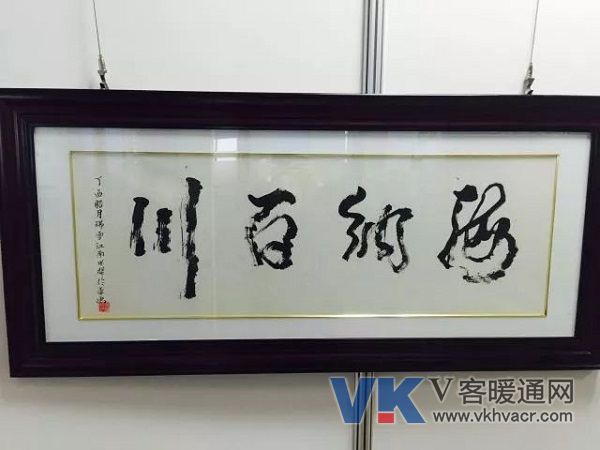 海納百川
丁酉腊月瑞雪江南
V客暖通网
www.vkhvacr.com